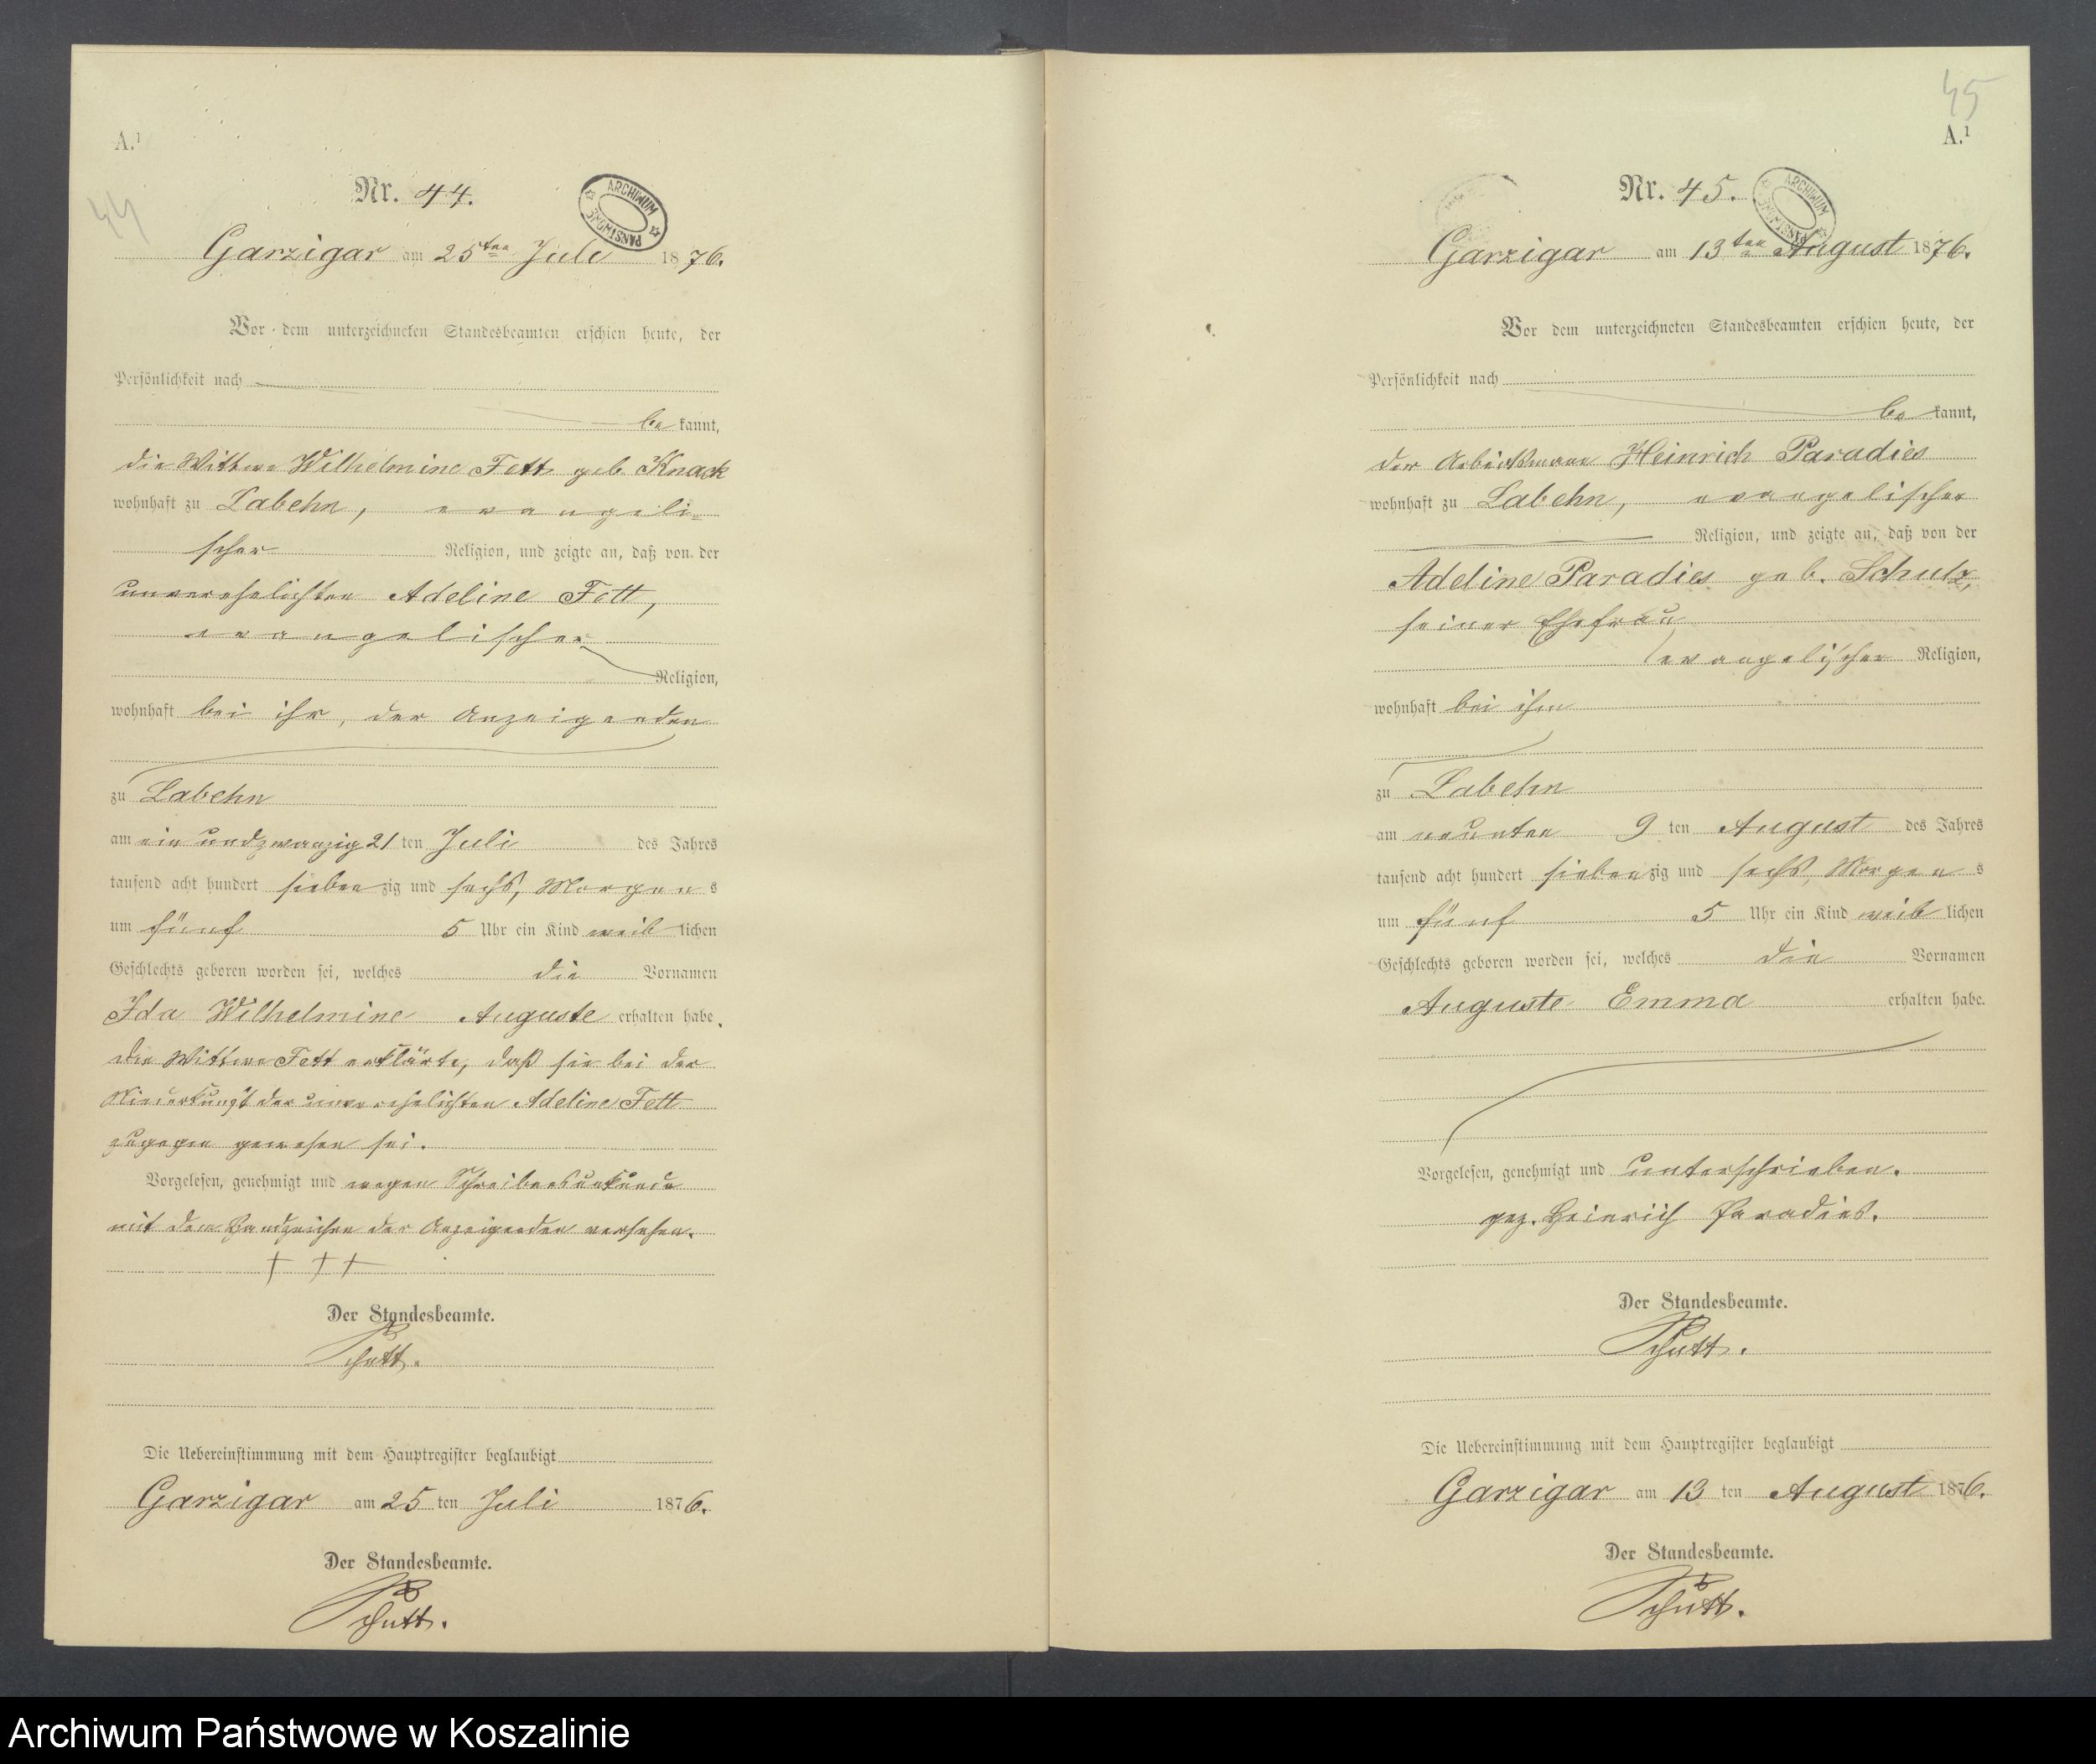 A.¹
44
Nr. 44.
ARCHIWUM PAŃSTWOWE
Garzigar am 25ten Juli 1876.
Vor dem unterzeichneten Standesbeamten erschien heute, der
Persönlichkeit nach
bekannt,
die Wittwe Wilhelmine Fett geb. Knack
wohnhaft zu Labehn, evangeli=
scher Religion, und zeigte an, daß von der
unverehelichten Adeline Fett,
evangelischer
Religion,
wohnhaft bei ihr, der Anzeigenden
zu Labehn
am ein und zwanzig 21 ten Juli des Jahres
tausend acht hundert siebenzig und sechs, Morgens
um fünf 5 Uhr ein Kind weiblichen
Geschlechts geboren worden sei, welches die Vornamen
Ida Wilhelmine Auguste erhalten habe.
Die Wittwe Fett erklärte, daß sie bei der
Niederkunft der unverehelichten Adeline Fett
zugegen gewesen sei.
Vorgelesen, genehmigt und wegen Schreibensunkunde
mit dem Handzeichen der Anzeigenden versehen.
† † †
Der Standesbeamte.
Schütt.
Die Uebereinstimmung mit dem Hauptregister beglaubigt
Garzigar am 25 ten Juli 1876.
Der Standesbeamte.
Schütt.
45
A.¹
Nr. 45.
ARCHIWUM PAŃSTWOWE
Garzigar am 13ten August 1876.
Vor dem unterzeichneten Standesbeamten erschien heute, der
Persönlichkeit nach
bekannt,
der Arbeitsmann Heinrich Paradies
wohnhaft zu Labehn, evangelischer
Religion, und zeigte an, daß von der
Adeline Paradies geb. Schulz,
seiner Ehefrau
evangelischer Religion,
wohnhaft bei ihm
zu Labehn
am neunten 9 ten August des Jahres
tausend acht hundert siebenzig und sechs, Morgens
um fünf 5 Uhr ein Kind weiblichen
Geschlechts geboren worden sei, welches die Vornamen
Auguste Emma erhalten habe.
Vorgelesen, genehmigt und unterschrieben.
gez. Heinrich Paradies.
Der Standesbeamte.
Schütt.
Die Uebereinstimmung mit dem Hauptregister beglaubigt
Garzigar am 13 ten August 1876.
Der Standesbeamte.
Schütt.
Archiwum Państwowe w Koszalinie